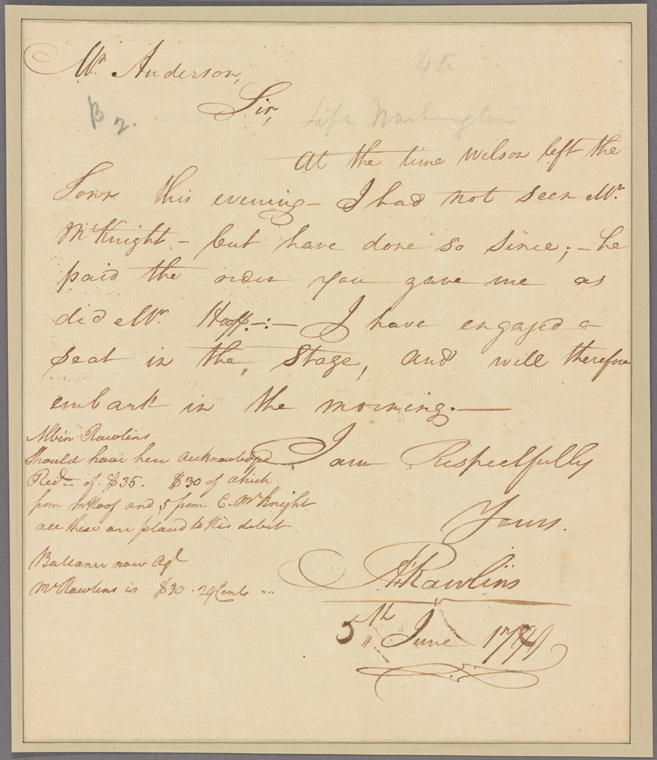 Mr. Anderson,
4th
Sir,
B 2.
Life Washington
At the time Wilson left the
Town this evening – I had not seen Mr.
McKnight – but have done so since; – he
paid the order you gave me as
did Mr. Hooff –:– I have engaged a
Seat in the Stage, and will therefore
embark in the morning. –
I am Respectfully
Yours.
A Rawlins
5th June 1799
Albin Rawlins
Should have here acknowledged
Recd. of $35. $30 of which
from Mr Hoof and 5 from C. McKnight
all these are placed to his debit
Ballance now agt
Mr Rawlins is $30. 29 Cents